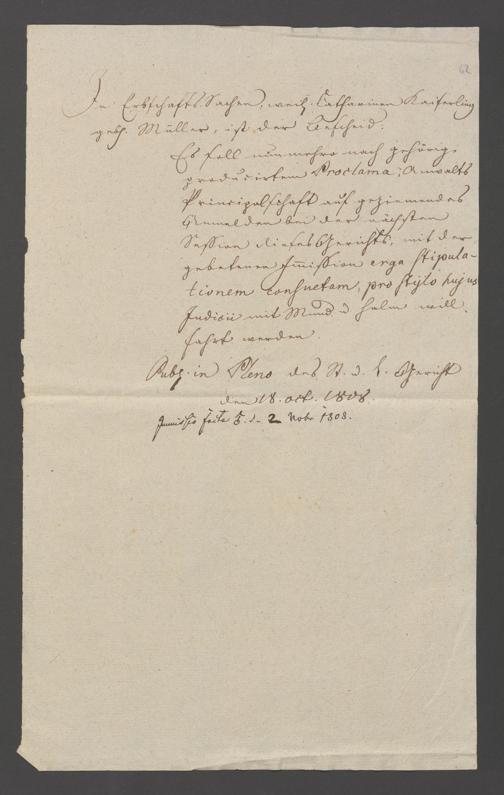 62
In Erbschafts Sachen, weil. Catharinen Kaiserling
geb. Müller, ist der Bescheid:
Es soll nunmehro nach gehörig
producirtem Proclama, Anwalts
Principalschaft auf geziemendes
Anmelden bei der nächsten
Session dieses Gerichts, mit der
gebetenen Immission erga stipula-
tionem consuetam, pro stylo hujus
Judicii mit Mund u halm will-
fahrt werden.
Publ. in Pleno des St. d. Gericht
den 18. oct. 1808.
Immissio facta d. 2 Nobr 1808.